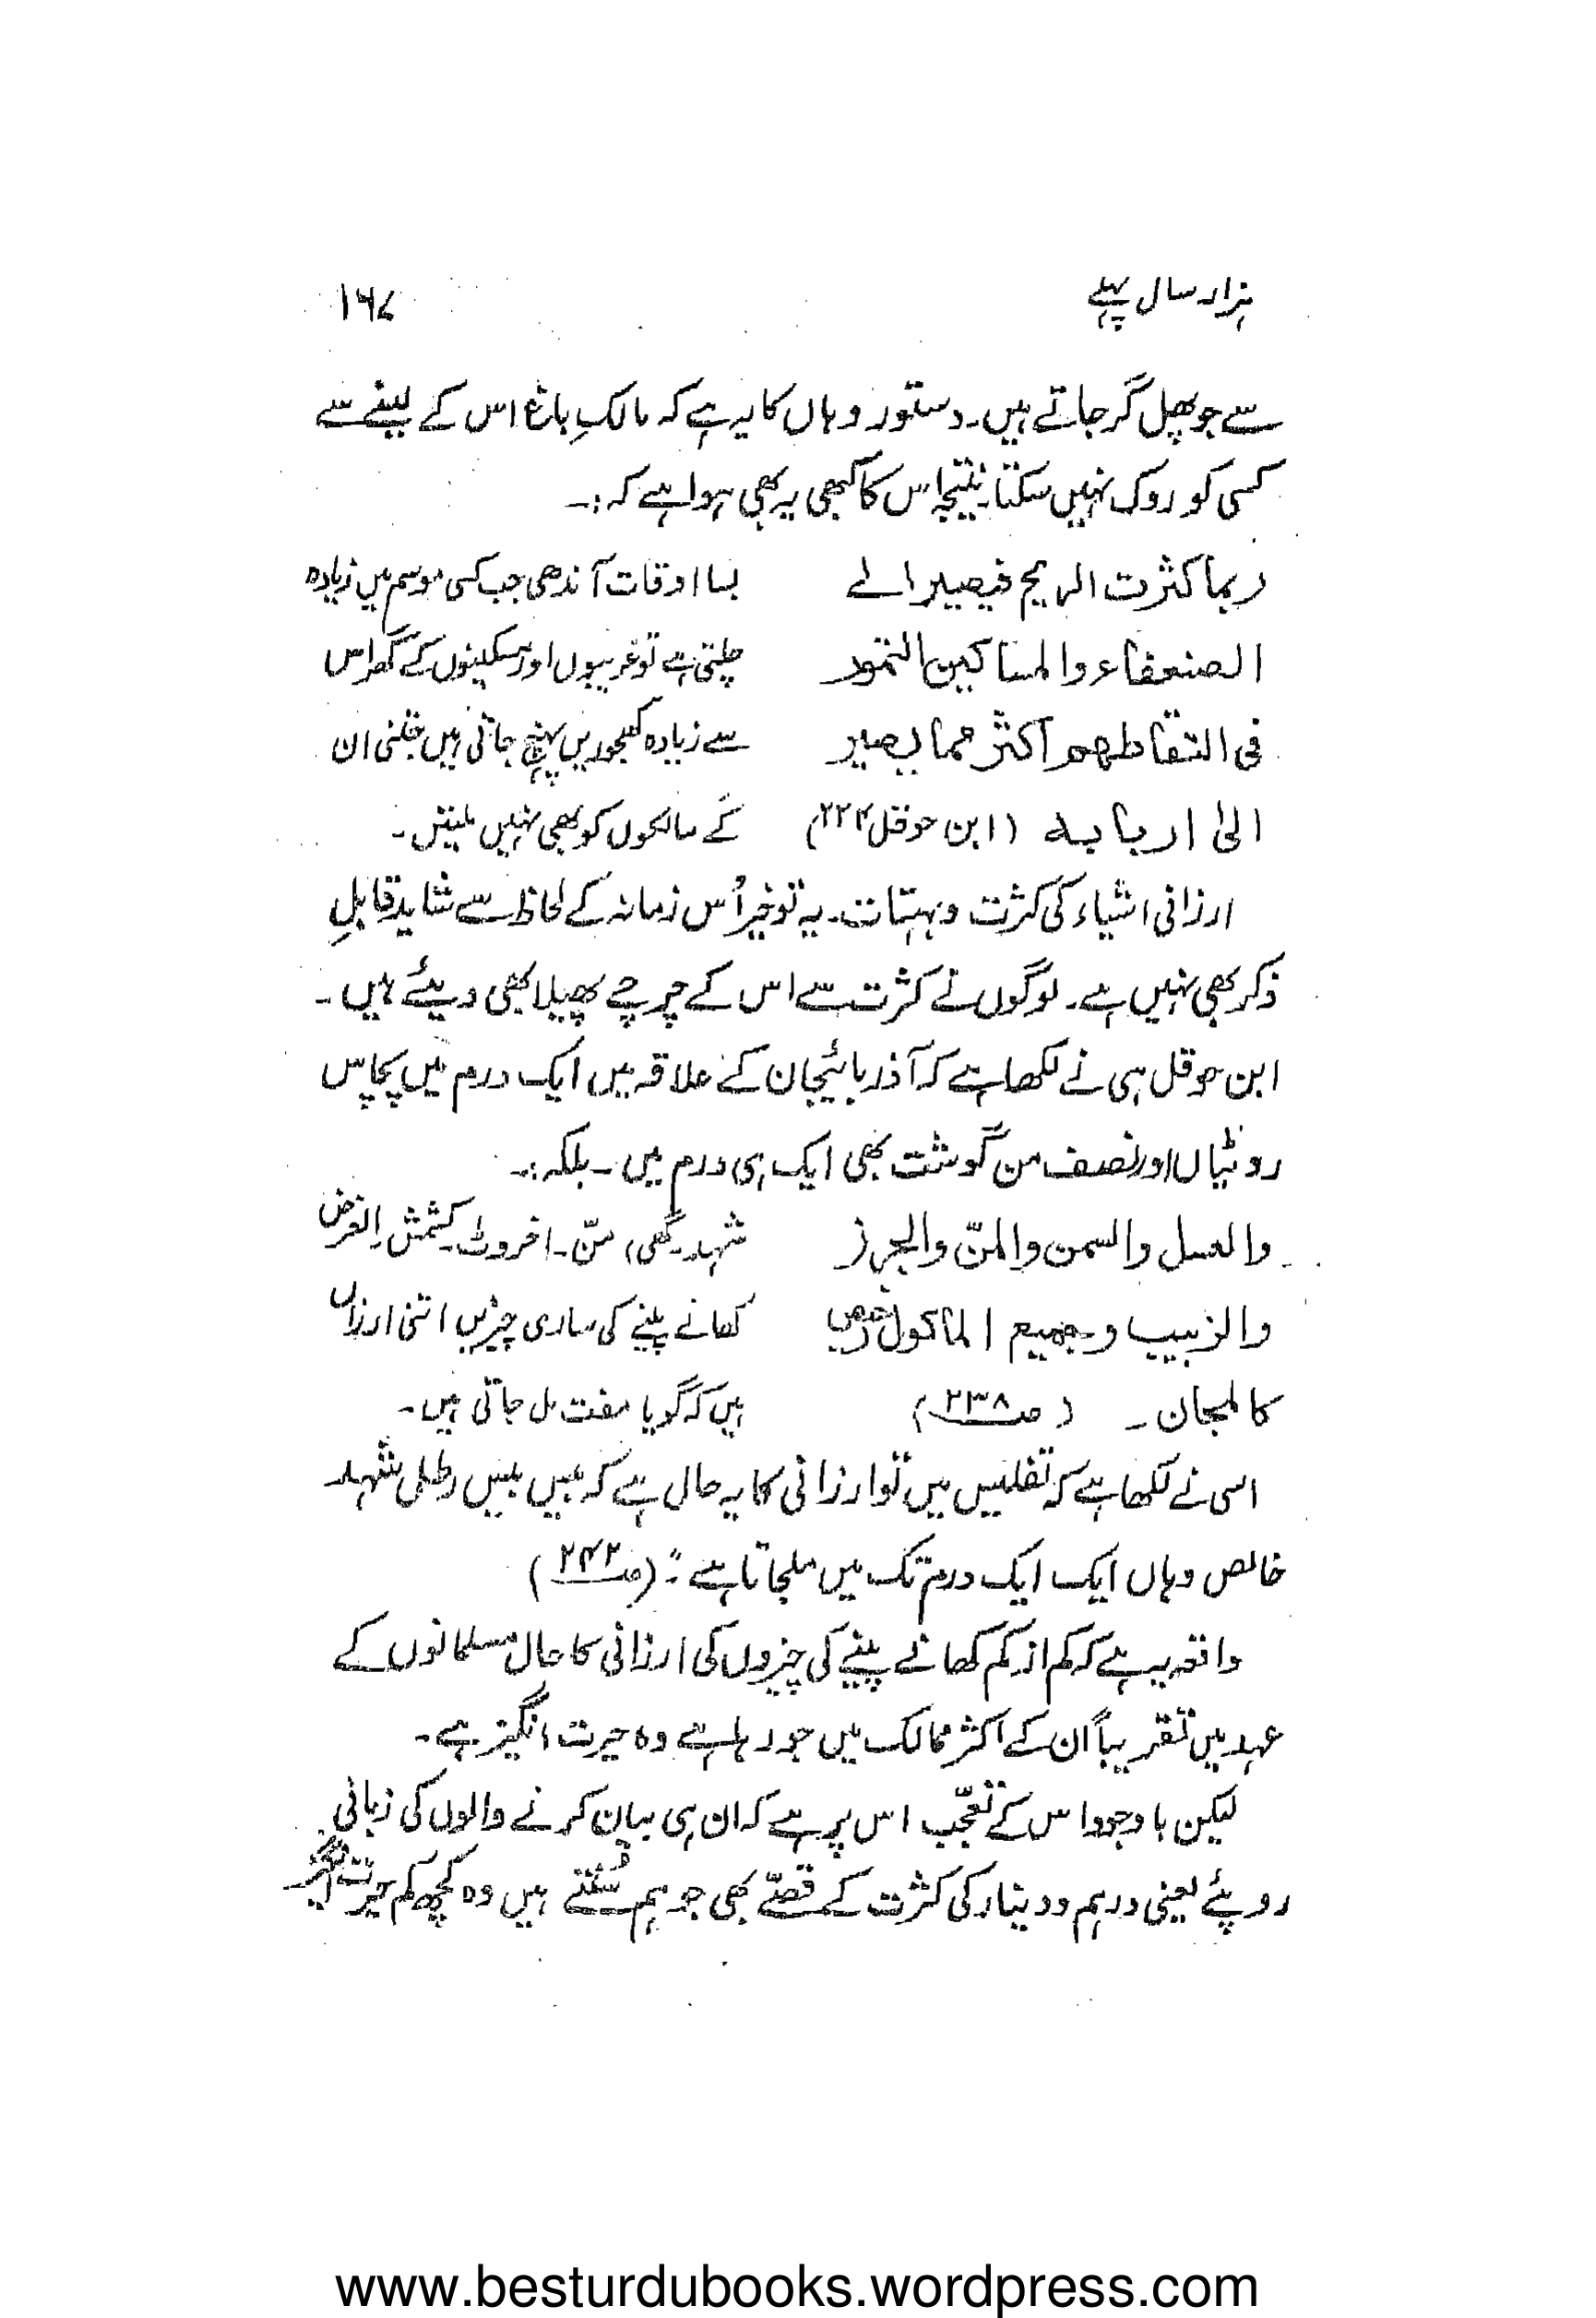 ہزار سال پہلے ۱۶۷
سے جو پھل گر جاتے ہیں۔ دستور وہاں کا یہ ہے کہ مالکِ باغ اس کے لینے سے
کسی کو روک نہیں سکتا۔ نتیجہ اس کا کبھی یہ بھی ہوا ہے کہ :۔
ربما کثرت الریح فیصیر الے بسا اوقات آندھی جب کسی موسم میں زیادہ
الضعفاء والمساکین التمور چلتی ہے تو غریبوں اور مسکینوں کے گھر اس
فی التقاطھم اکثر مما یصیر سے زیادہ کھجوریں پہنچ جاتی ہیں جتنی ان
الیٰ اربابہ (ابن حوقل ۲۲۴) کے مالکوں کو بھی نہیں ملیتں۔
ارزانی اشیاء کی کثرت و بہتات۔ یہ تو خیر اُس زمانہ کے لحاظ سے شاید قابلِ
ذکر بھی نہیں ہے۔ لوگوں نے کثرت سے اس کے چرچے پھیلا بھی دیئے ہیں۔
ابن حوقل ہی نے لکھا ہے کہ آذر بائیجان کے علاقہ میں ایک درم میں پچاس
روٹیاں اور نصف من گوشت بھی ایک ہی درم میں ۔ بلکہ :۔
والعسل والسمن والمنّ والجرز شہد۔ گھی، منّ۔ اخروٹ۔ کشمش الغرض
والزبیب وجمیع الماکول رخیص کھانے پینے کی ساری چیزیں اتنی ارزاں
کالمجان ۔ (صـ ۲۳۸) ہیں کہ گویا مفت مل جاتی ہیں۔
اسی نے لکھا ہے کہ تفلیس میں تو ارزانی کا یہ حال ہے کہ بیس بیس رطل شہد
خالص وہاں ایک ایک درم تک میں ملجاتا ہے :" (صـ ۲۴۲)
واقعہ یہ ہے کہ کم از کم کھانے پینے کی چیزوں کی ارزانی کا حال مسلمانوں کے
عہد میں تقریباً ان کے اکثر ممالک میں جو رہا ہے وہ حیرت انگیز ہے۔
لیکن باوجود اس کے تعجّب اس پر ہے کہ ان ہی بیان کرنے والوں کی زبانی
روپئے یعنی درہم و دینار کی کثرت کے قصّے بھی جو ہم سُنتے ہیں وہ کچھ کم حیرت انگیز
www.besturdubooks.wordpress.com